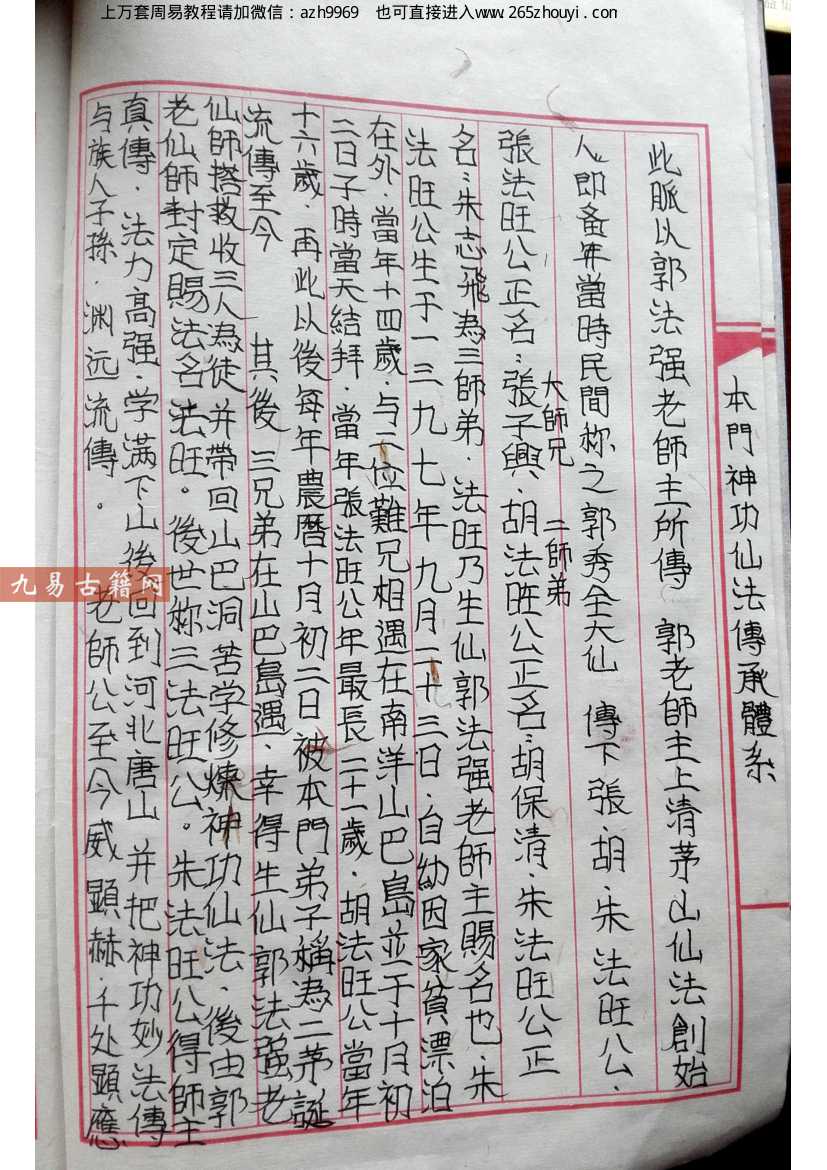 上万套周易教程请加微信：azh9969　也可直接进入www.265zhouyi.com
本門神功仙法傳承體系
此脈以郭法强老師主所傳　郭老師主上清茅山仙法創始
人即备年當時民間称之郭秀全大仙　傳下張、胡、朱法旺公、
張法旺公正名：張子興、胡法旺公正名：胡保清、朱法旺公正
大師兄　二師弟
名：朱志飛為三師弟．法旺乃生仙郭法强老師主賜名也．朱
法旺公生于一三九七年九月二十三日．自幼因家貧漂泊
在外．當年十四歲．与二位難兄相遇在南洋山巴島並于十月初
二日子時當天結拜．當年張法旺公年最長二十一歲．胡法旺公當年
十六歲．再此以後每年農曆十月初二日被本門弟子稱為二茅誕
流傳至今　其後　三兄弟在山巴島遇、幸得生仙郭法强老
仙師搭救收三人為徒并帶回山巴洞苦学修煉神功仙法．後由郭
老仙師封定賜法名法旺。後世称三法旺公。朱法旺公得師主
真傳．法力高强．学满下山後回到河北唐山　并把神功妙法傳
与族人子孫．渊远流傳。　老師公至今威顯赫．千处顯應
九易古籍网